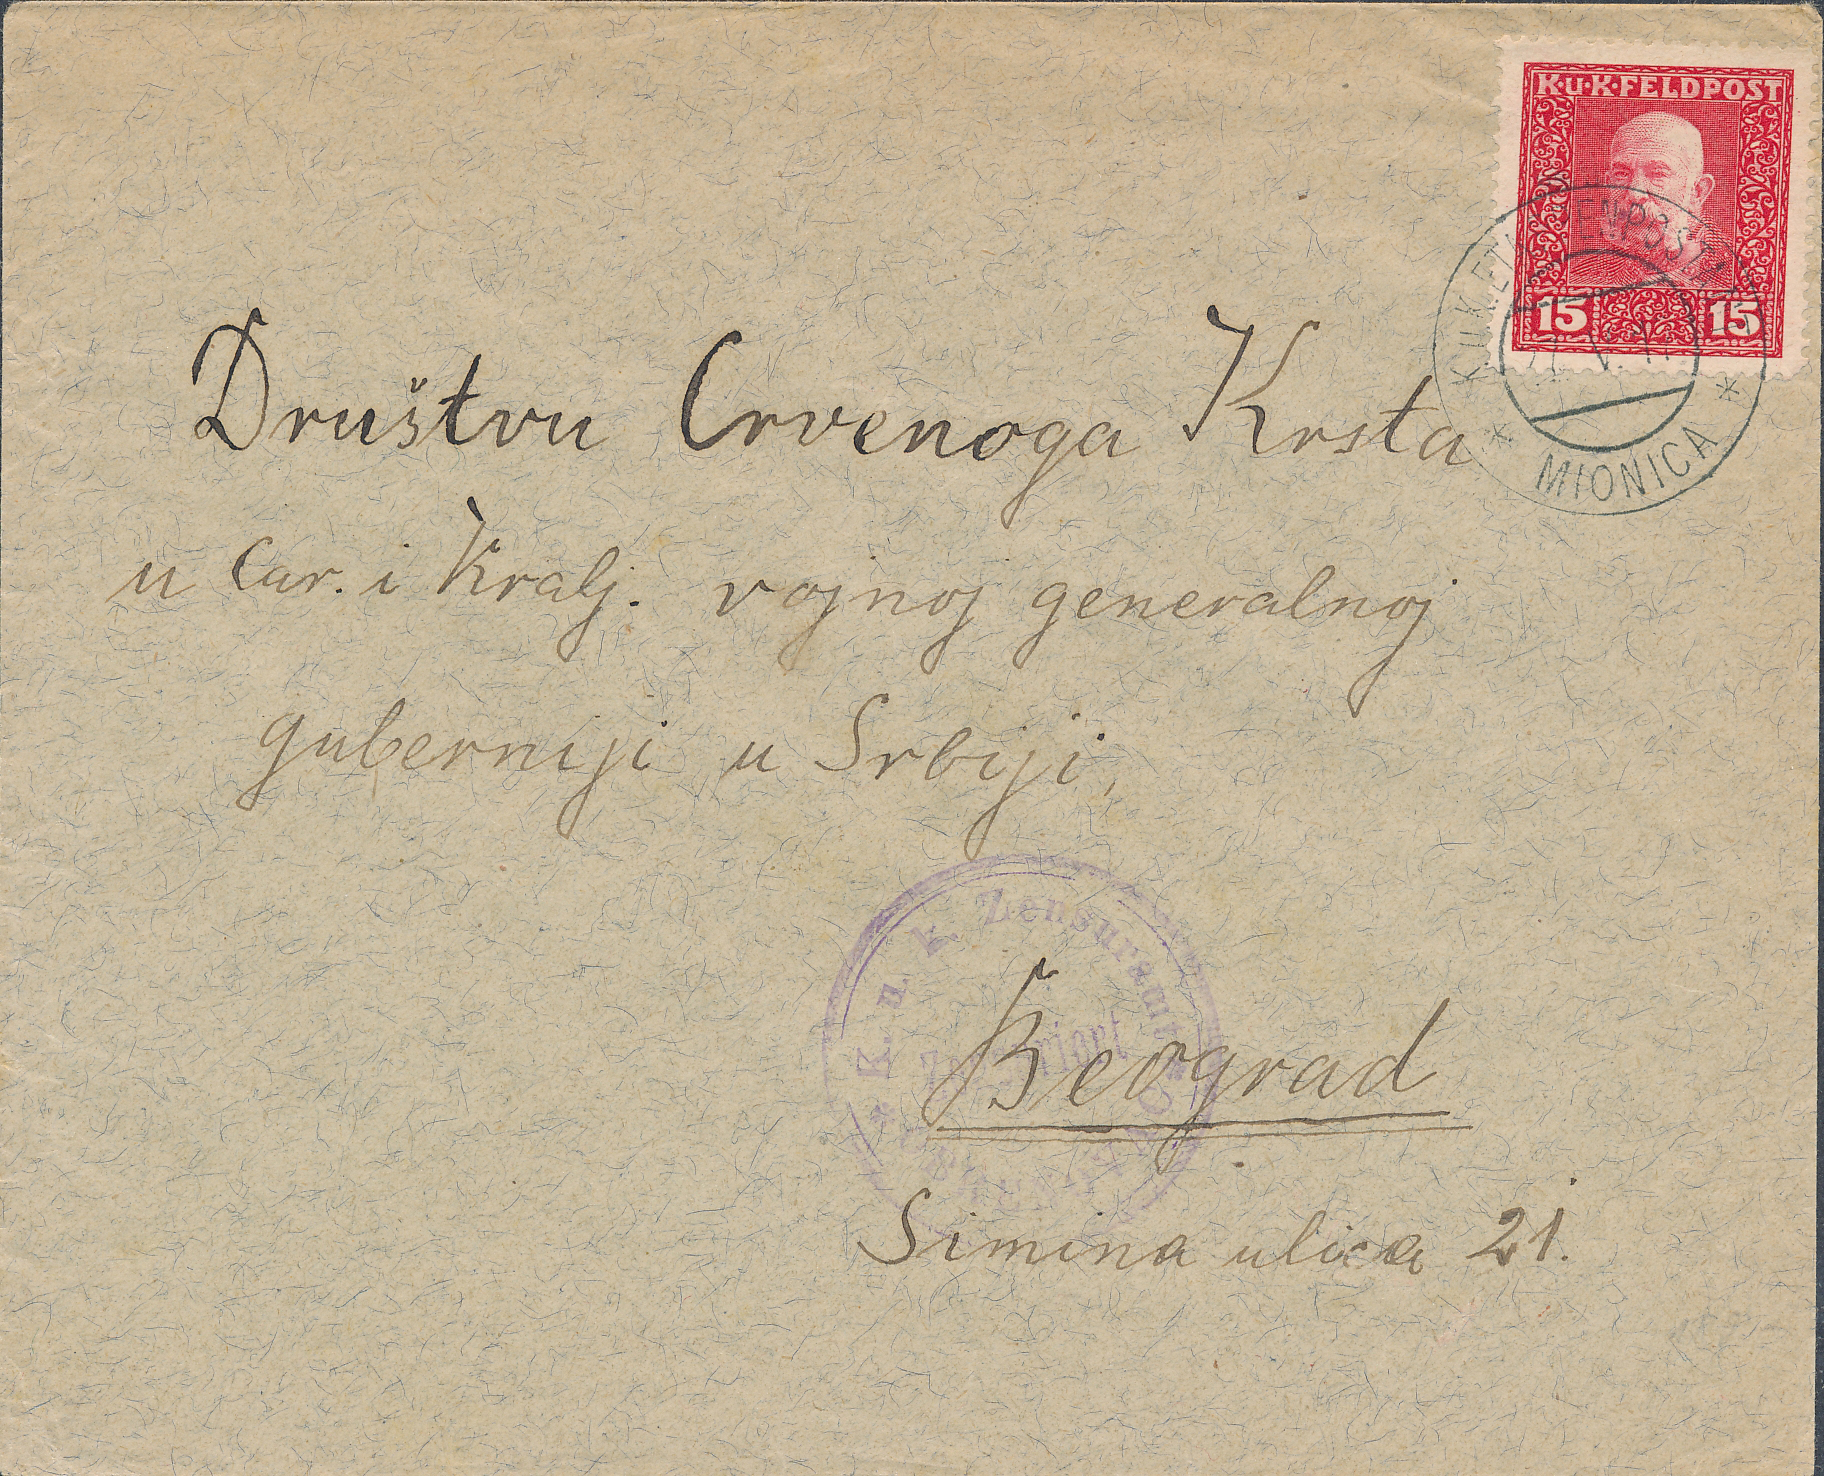 K.u.K.FELDPOST
15 15
K.u.K.
MIONICA
Društvu Crvenoga Krsta
u Car. i Kralj. vojnoj generalnoj
guberniji u Srbiji,
K. u. k. Zensuramt
Beograd
Simina ulica 21.